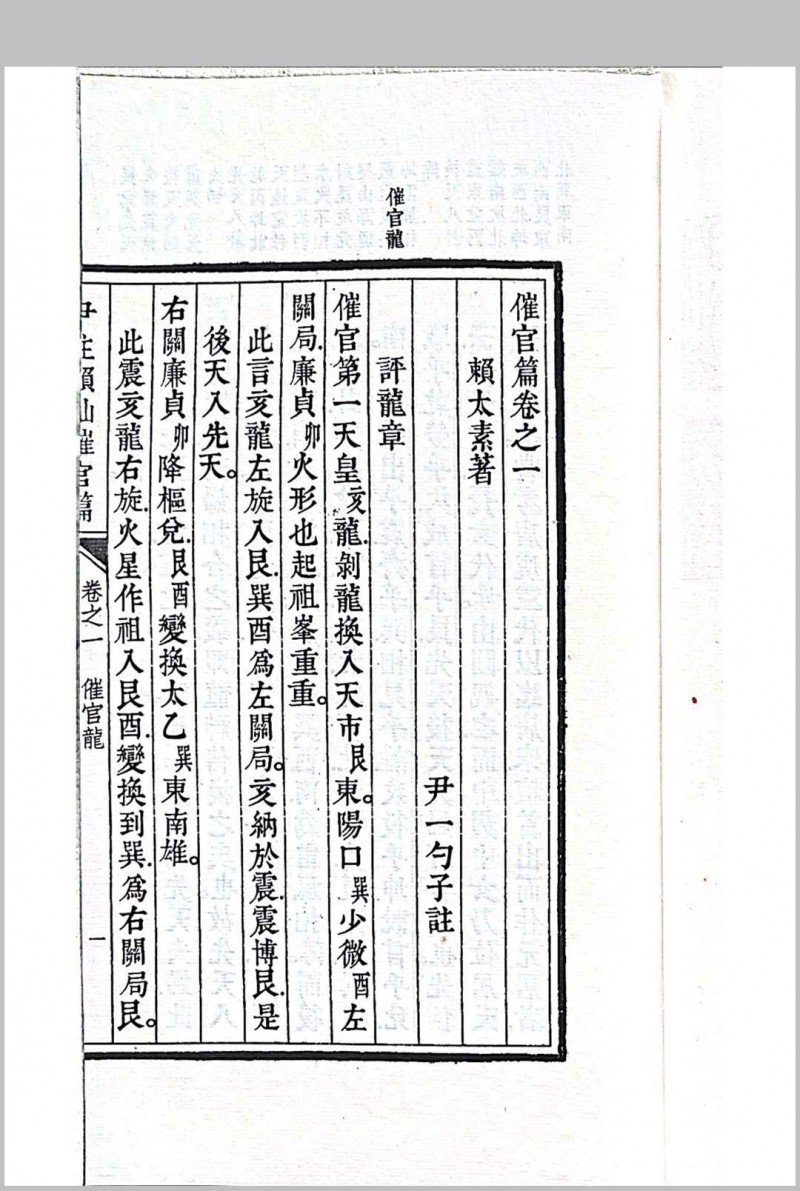 催官龍
催官篇卷之一
賴太素著
尹一勺子註
評龍章
催官第一天皇亥龍.剝龍換入天市艮東。陽口巽少微酉左
關局.廉貞卯火形也起祖峯重重。
此言亥龍左旋入艮.巽酉爲左關局。亥納於震.震博艮.是
後天入先天。
右關廉貞卯降樞兌.艮酉變換太乙巽東南雄。
此震亥龍右旋.火星作祖入艮酉.變換到巽.爲右關局艮。
尹註賴仙催官篇
卷之一 催官龍
一